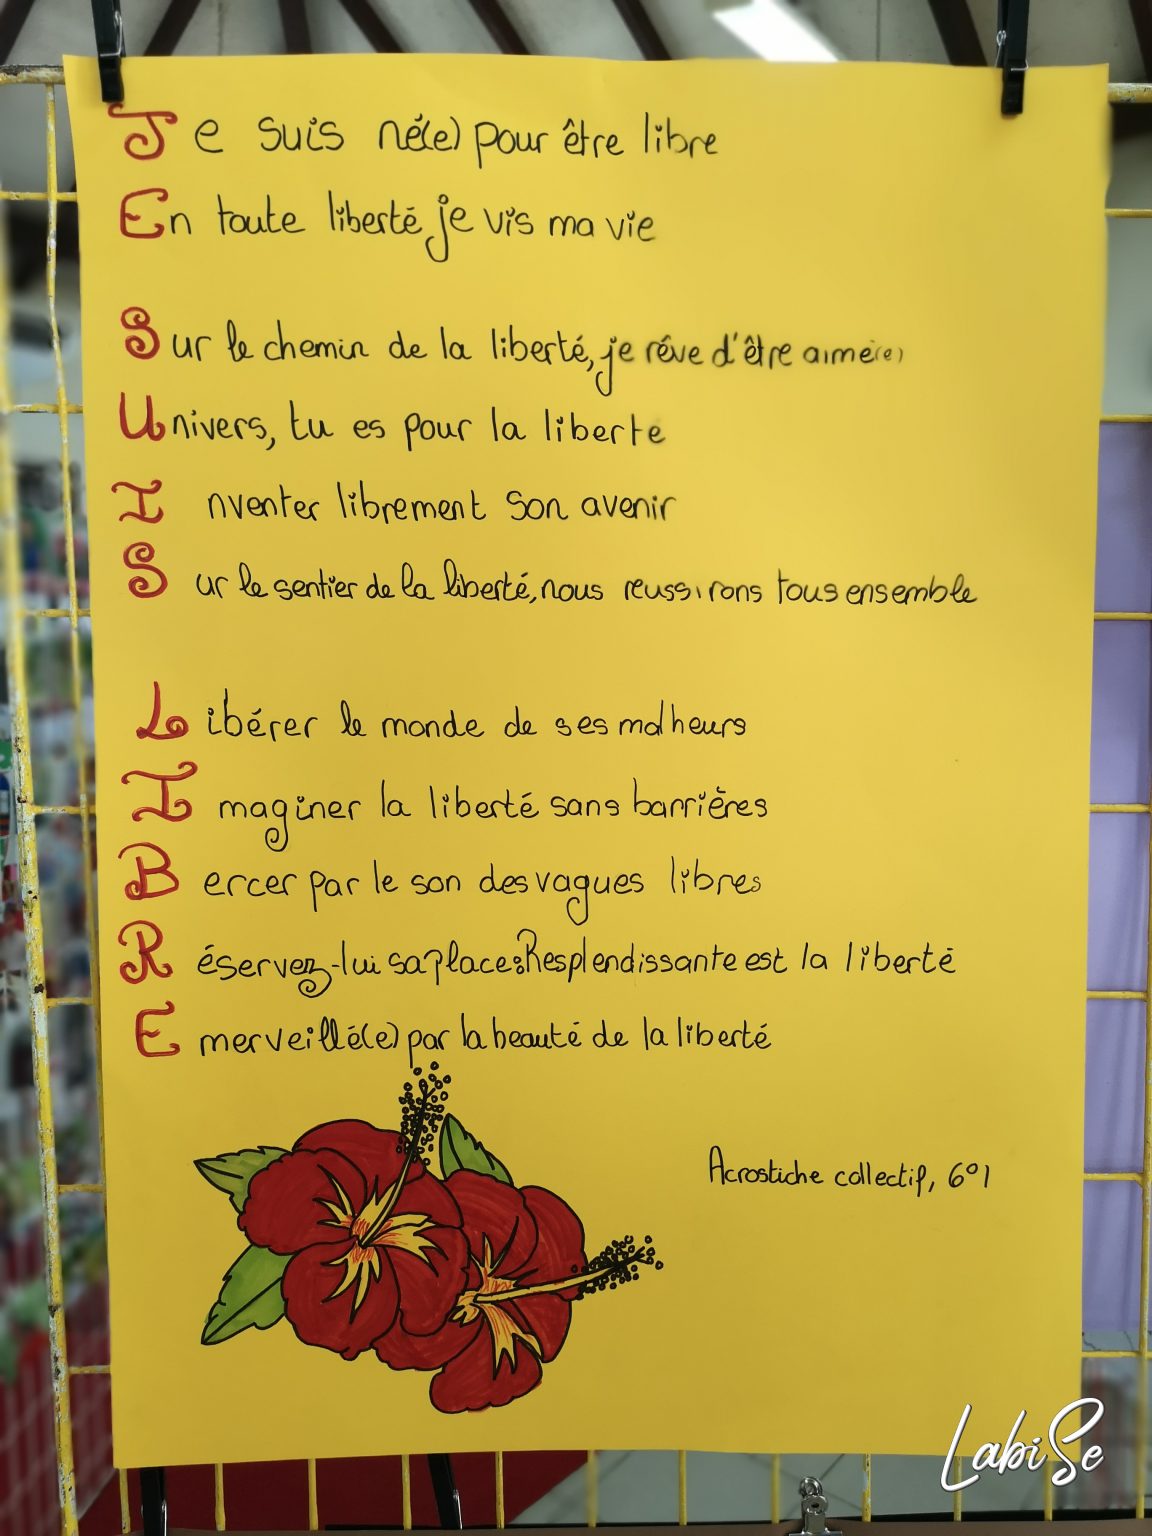 Je suis né(e) pour être libre
En toute liberté, je vis ma vie
Sur le chemin de la liberté, je rêve d'être aimé(e)
Univers, tu es pour la liberté
Inventer librement son avenir
Sur le sentier de la liberté, nous reussirons tous ensemble
Libérer le monde de ses malheurs
Imaginer la liberté sans barrières
Bercer par le son des vagues libres
Réservez-lui sa place: Resplendissante est la liberté
Emerveillé(e) par la beauté de la liberté
Acrostiche collectif, 6°1
LabiSe